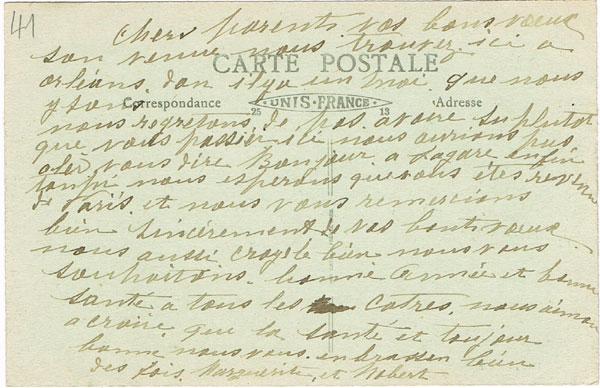 41
Chers parents vos bons vœux
son venue nous trouver ici a
CARTE POSTALE
orléans. don ilya un moi que nous
y som
Correspondance
UNIS-FRANCE
Adresse
25
13
nous regretons de pas avoire su plutot
que vous passier ici nous aurions pus
aler vous dire Bonjour. a Lagare enfin
tanpi nous esperons que vous êtes revenu
de Paris. et nous vous remercions
bien sincèrement de vos bonts vœux
nous aussi croyé le bien nous vous
souhaitons. bonne année et bonne
santé a tous les Cotres. nous aimons
a croire que la santé et toujour
bonne nous vous enbrassen bien
des fois. Marguerite et Robert